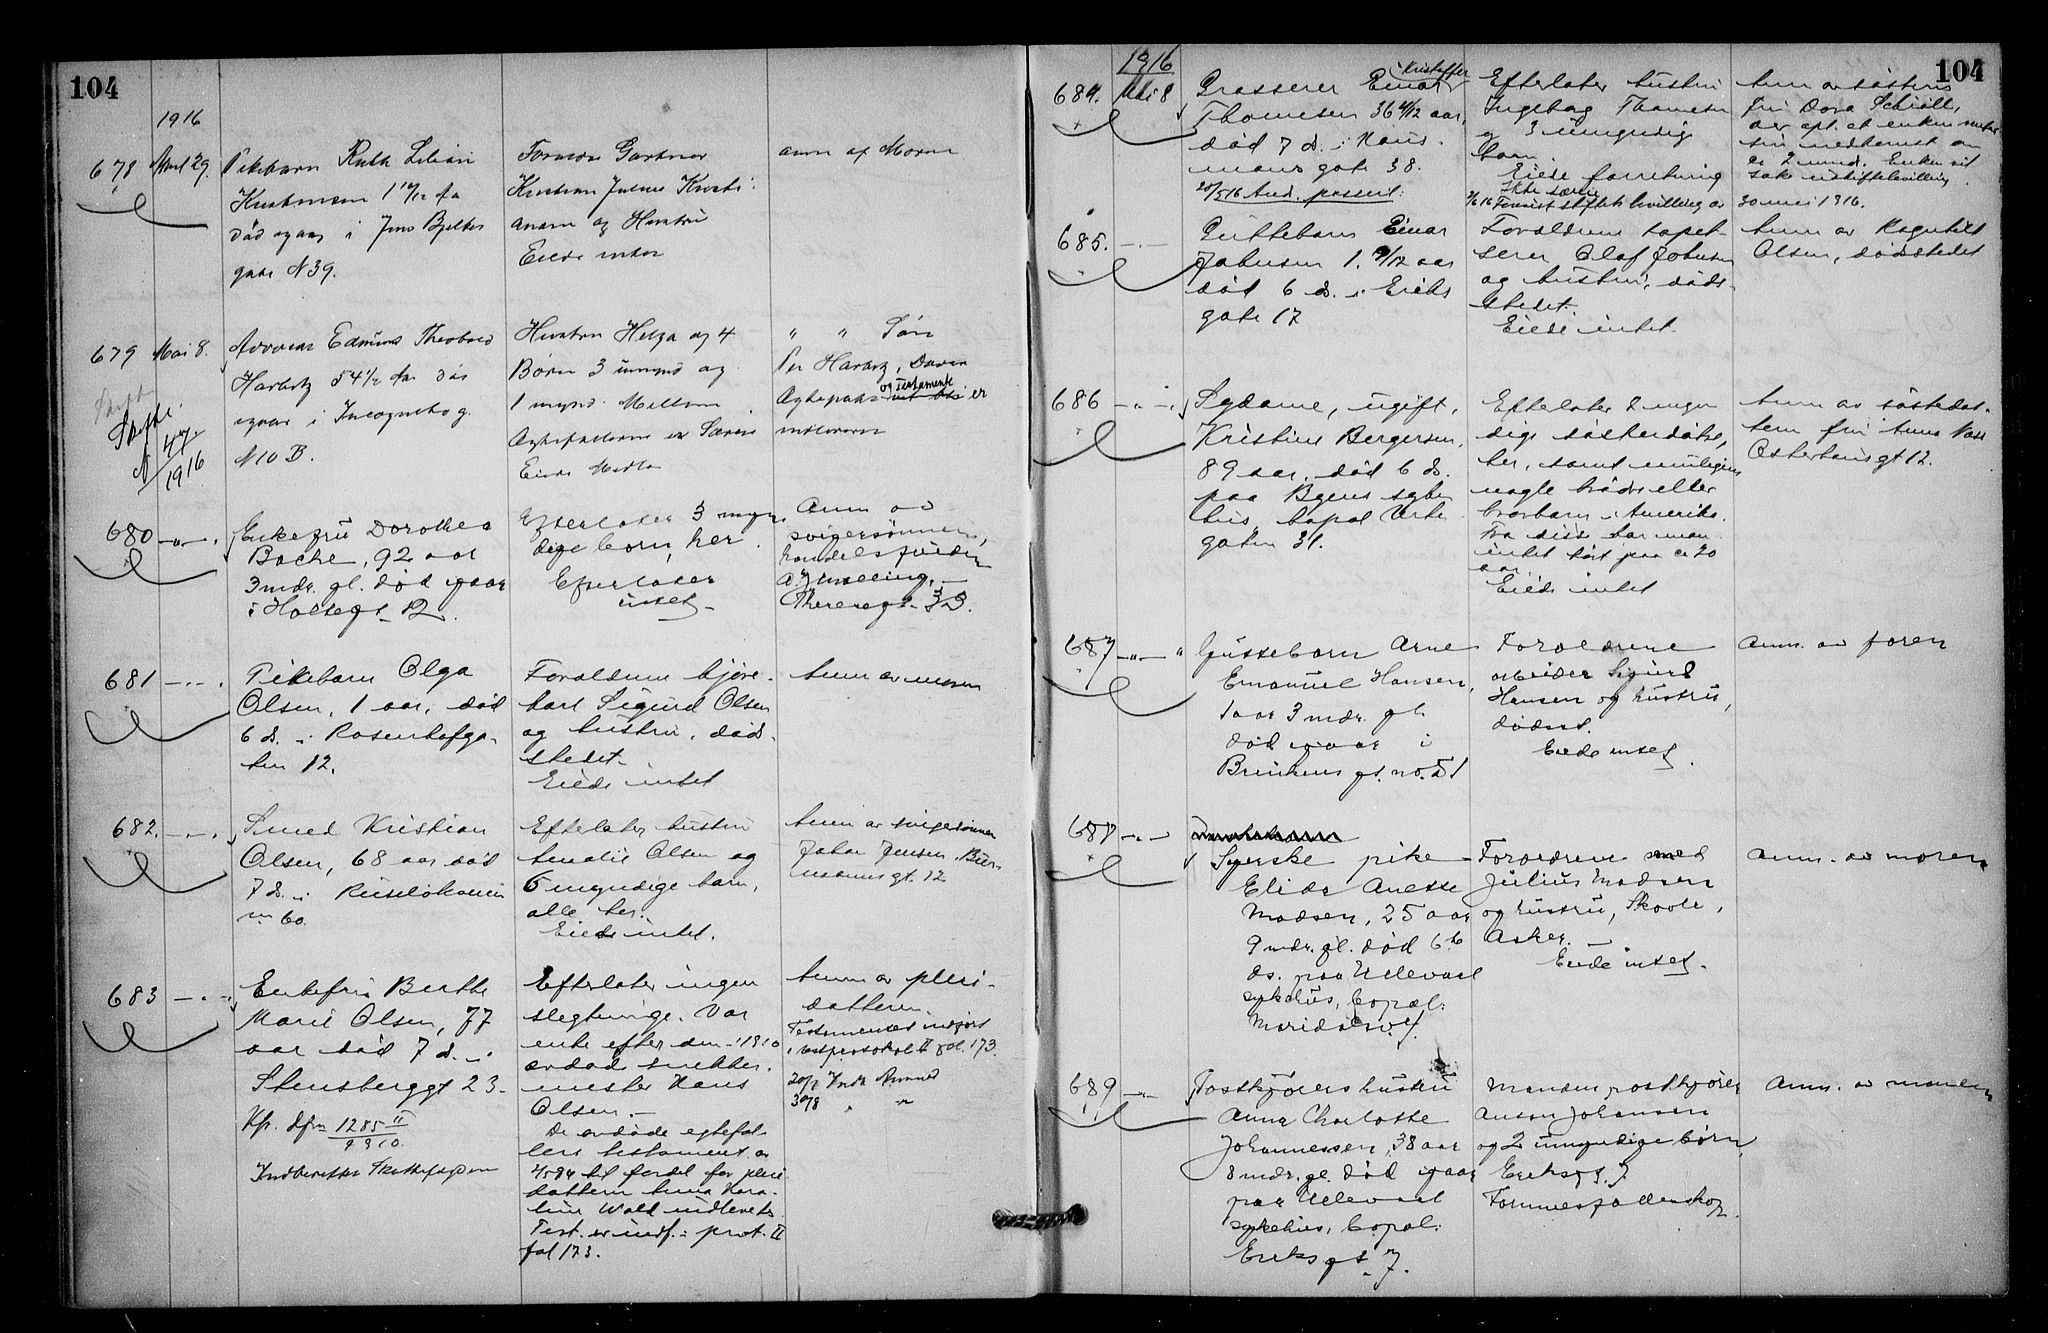 104
1916
678 April 29. Pikebarn Ruth Lilian
Kristiansen 1 10/12 Aar
død igaar i Jens Bjelkes
gade N 39.
Gartner
Kristian Julius Kristi-
ansen og Hustru
Eiede intet
anm af Moren
679 Mai 8. Advokat Edmund Theobald
Harbitz 54 1/2 Aar død
igaar i Incognitog.
N 10 B.
Skifte
N 47
1916
Hustru Helga og 4
Børn 3 umynd og
1 mynd. Mellem
Ægtefællerne er Særeie
Eiede Midler
" " Søn
Per Harbitz,
Ægtepakt og Testamente er
indleveret
680 -"- Enkefru Dorothea
Bache, 92 aar
3 mdr. gl. død igaar
i Holtegt. 12.
Efterlater 3 myn-
dige børn, her.
Efterlater
intet -
Anm av
svigersønnen,
Theresegt. 39.
681 -"- Pikebarn Olga
Olsen, 1 aar, død
6 ds. i Rosenhofga-
ten 12.
Forældrene kjøre-
karl Sigurd Olsen
og hustru, død-
stedet.
Eiede intet
Anm av moren
682. -"- Smed Kristian
Olsen, 68 aar død
7 ds. i Ruseløkveien
nr 60.
Efterlater hustru
Amalie Olsen og
6 myndige barn,
alle her.
Eiede intet.
Anm av svigersønnen
Johan Jensen, Bier-
mannsgt. 12
683 -"- Enkefru Berthe
Marie Olsen, 77
aar død 7 ds. i
Stensberggt 23.
1285 II
9910.
Indberettet Skattefogden
Efterlater ingen
slegtninge. Var
enke efter den i 1910
avdøde snekker-
mester Hans
Olsen. -
De avdøde egtefæl-
lers testament av
til fordel for pleie-
datteren Anna Karo-
line Wold indleveres.
Test. er indf. i prot. II
fol 173.
Anm av pleie-
datteren.
Testamentet indført
i testprotokol II fol. 173.
104
1916
684. Mai 8 Grosserer Einar Kristoffer
Thomesen 36 4/12 aar,
død 7 ds. i Haus-
manns gate 38.
20/5 16 Anm. passert.
Efterlater hustru
Ingeborg Thomesen
og 3 umyndige
barn.
Eiede forretning
Ikke særeie
Anm av søsteren
frk Dora
30 mai 1916.
685. -"- Guttebarn Einar
Johnsen 1. 9/12 aar
død 6 ds. i Eriks
gate 17
Forældrene tapet-
serer Olaf Johnsen
og hustru, døds-
stedet.
Eiede intet.
Anm av Ragnhild
Olsen, dødstedet
686 -"- Sydame, ugift,
Kristine Bergersen,
89 aar, død 6 ds.
paa Byens syke-
hus, bopæl Urte-
gaten 31.
Efterlater 2 myn-
dige søsterdøtre,
her, samt muligens
nogle brødre eller
brorbarn i Amerika.
Fra disse har man
intet hørt paa ca 20
aar.
Eiede intet
Anm av søsterdat-
teren frk Anna
gt 12.
687 -"- " Guttebarn Arne
Emanuel Hansen,
1 aar 3 mdr. gl.
død igaar i
Brinkens gt. no. 51
Forældrene
arbeider Sigurd
Hansen og hustru,
dødsst.
Eiede intet.
Anm. av faren
688 -"-
Syerske pike
Elida Anette
Madsen, 25 aar
9 mdr. gl. død 6.
ds. paa Ullevaal
sykehus, bopæl:
Forældrene smed
Julius Madsen
og hustru,
Asker. -
Eiede intet.
Anm. av moren
689 -"- Postkjørers hustru
Anna Charlotte
Johannessen, 38 aar
8 mdr. gl. død igaar
paa Ullevaal
sykehus, bopæl:
Eriksgt. 7.
Manden postkjører
Anton Johansen
og 2 umyndige børn,
Eriksgt. 7
Formuesfællesskap.
Anm. av manden